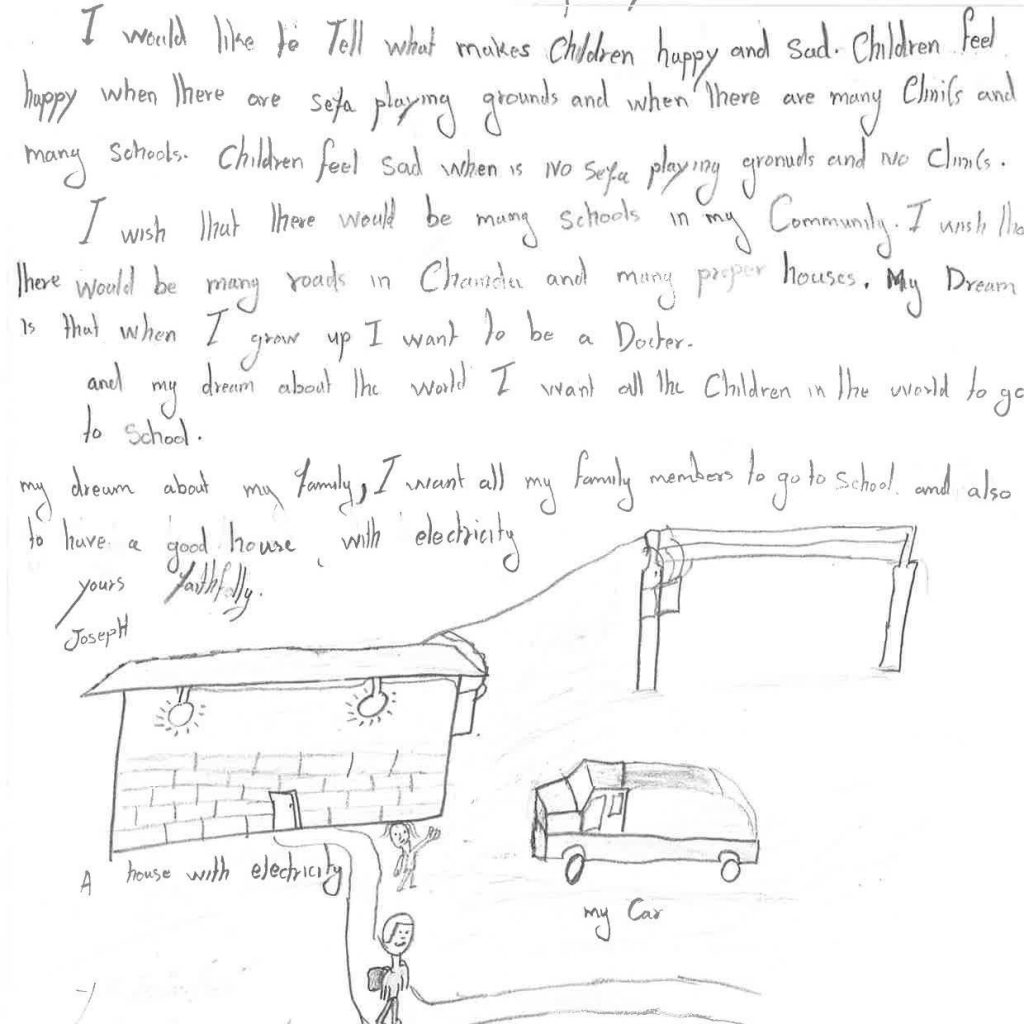 I would like to Tell what makes Children happy and sad. Children feel
happy when there are sefa playing grounds and when there are many Clinics and
many schools. Children feel sad when is No sefa playing gronuds and No clinics.
I wish that there would be many schools in my Community. I wish tha
there would be many roads in and many proper houses. My Dream
is that when I grow up I want to be a Docter.
and my dream about the world I want all the Children in the world to go
to school.
my dream about my family, I want all my family members to go to school and also
to have a good house, with electricity
yours faithfully.
Joseph
A house with electricity
my Car